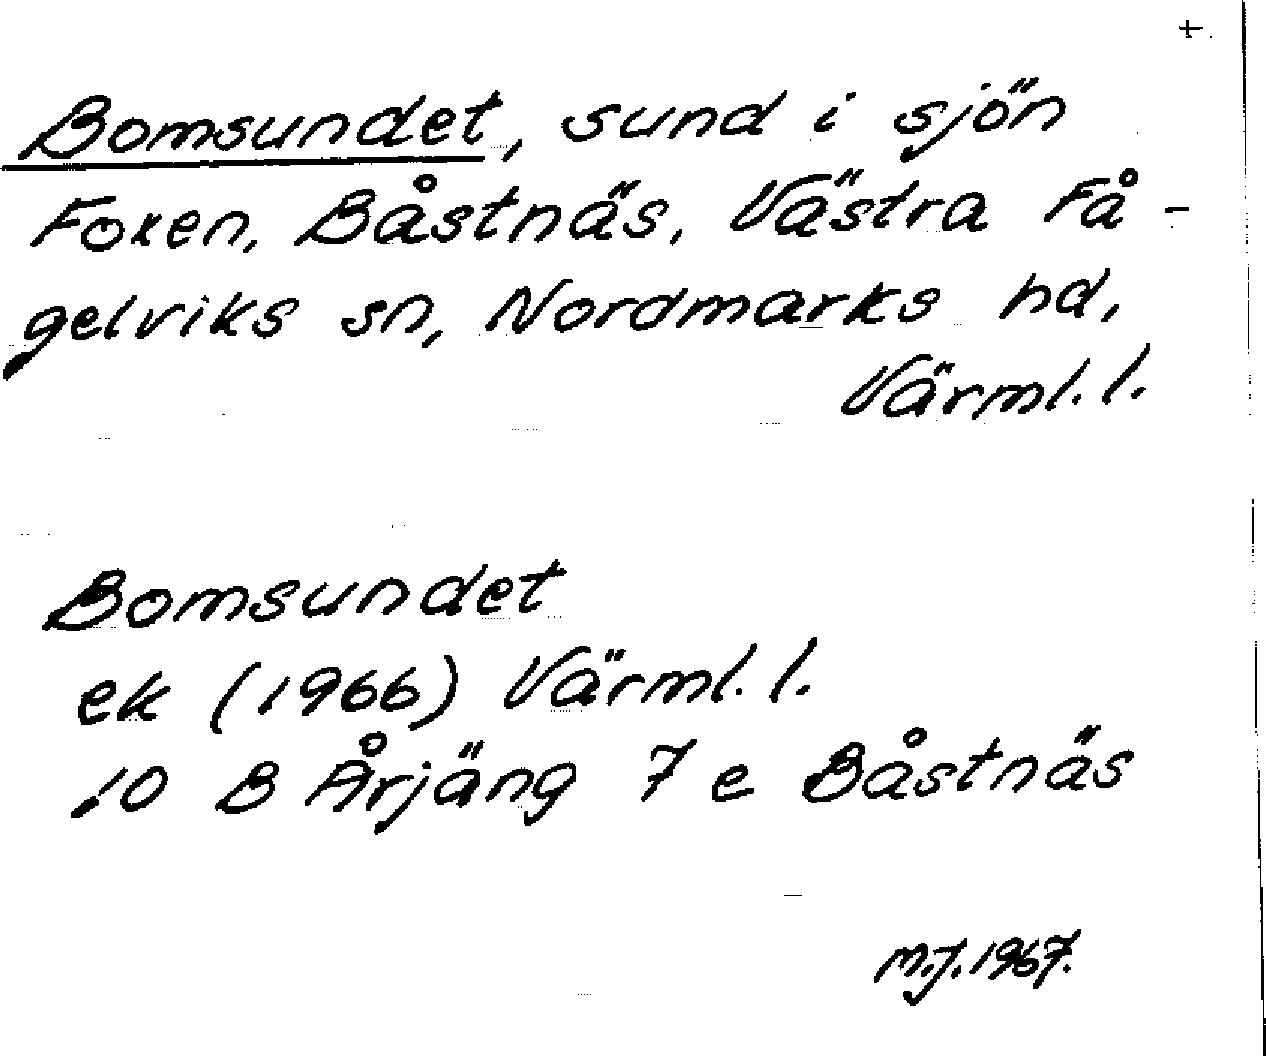 +.
Bomsundet, sund i sjön
Foxen, Båstnäs, Västra Få-
gelviks sn, Nordmarks hd,
Värml. l.
Bomsundet
ek (1966) Värml. l.
10 B Årjäng 7 e Båstnäs
M.J. 1967.